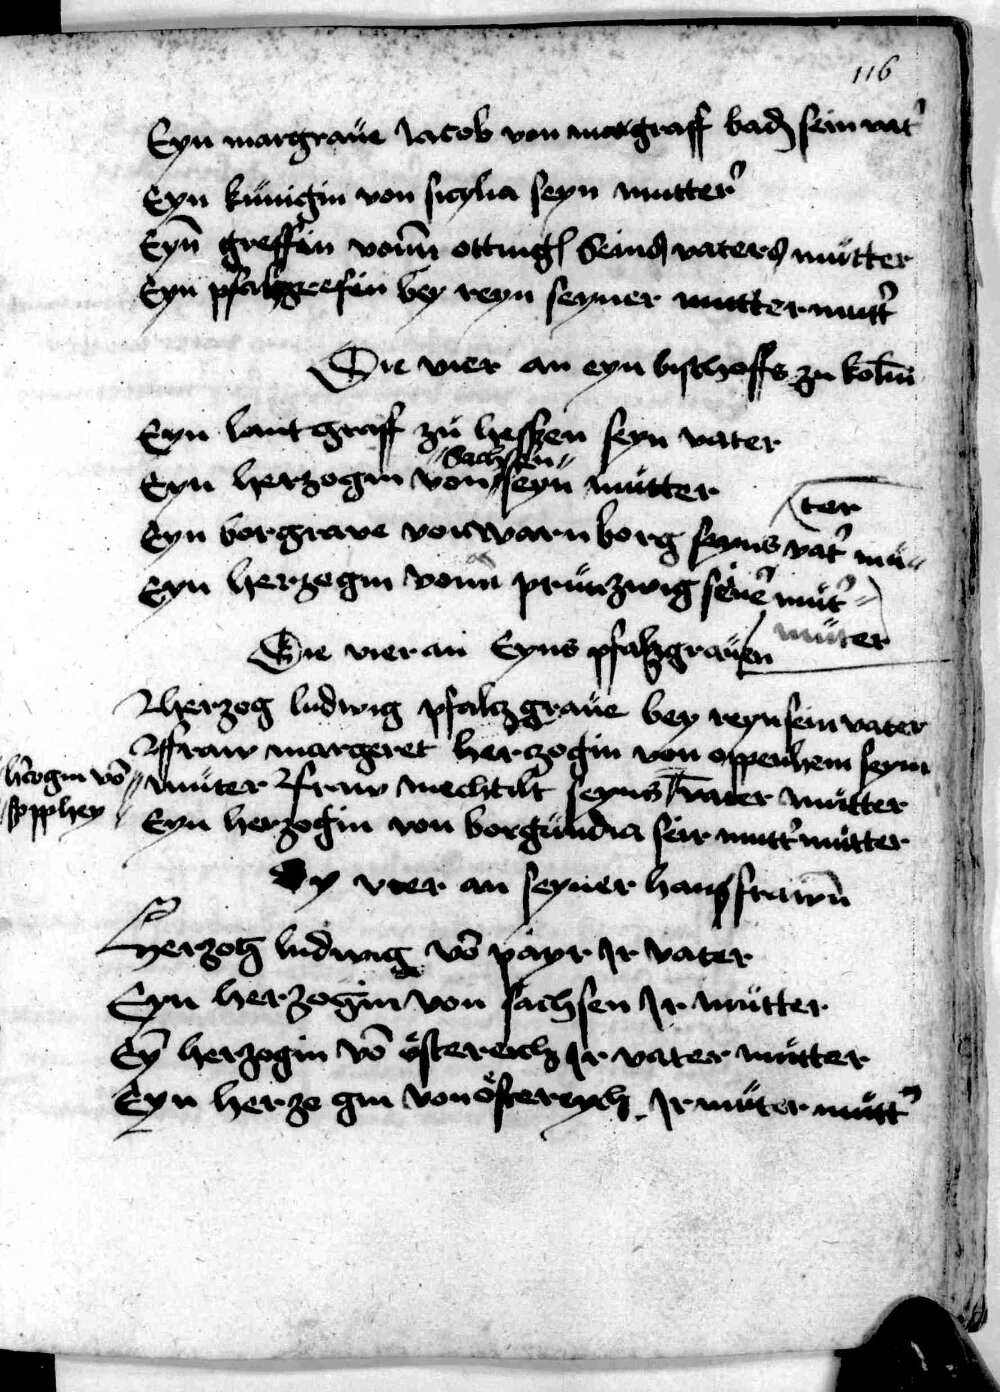 116
Eyn margraue Jacob von margraff bad sein vat'
Eyn künigin von sicylia seyn mutter
Eyn greffin vonn otting seins vaters mütter
Eyn pfalzgrefin bey reyn seyner muttermutt'
Die vier an eyn bisthoffs zu koln
Eyn lantgraff zü hessen seyn vater
"Sachsen"
Eyn herzogin von seyn mütter
ter
Eyn borgrave von warnborg seyns vat' mü-
Eyn herzogin vonn prünzwig seine' müt'
müter
Die vier an Eyns pfalzgrauen
herzog ludwig pfaltzgraue bey reyn sein vater
fraw margeret herzogin von oppenhem seyn
h'zogin vō sopphey
müter fraw mechtilt seyns vater mütter
Eyn herzogin von borgundia seir mutt'mütter
Dy vier an seyner hausfrawn
herzoh ludwig vō payr Ir vater
Eyn herzogin von sachsen Ir mütter
Ey herzogin vō östereich Ir vater mütter
Eyn herzegin von östereych Ir müter mütt'